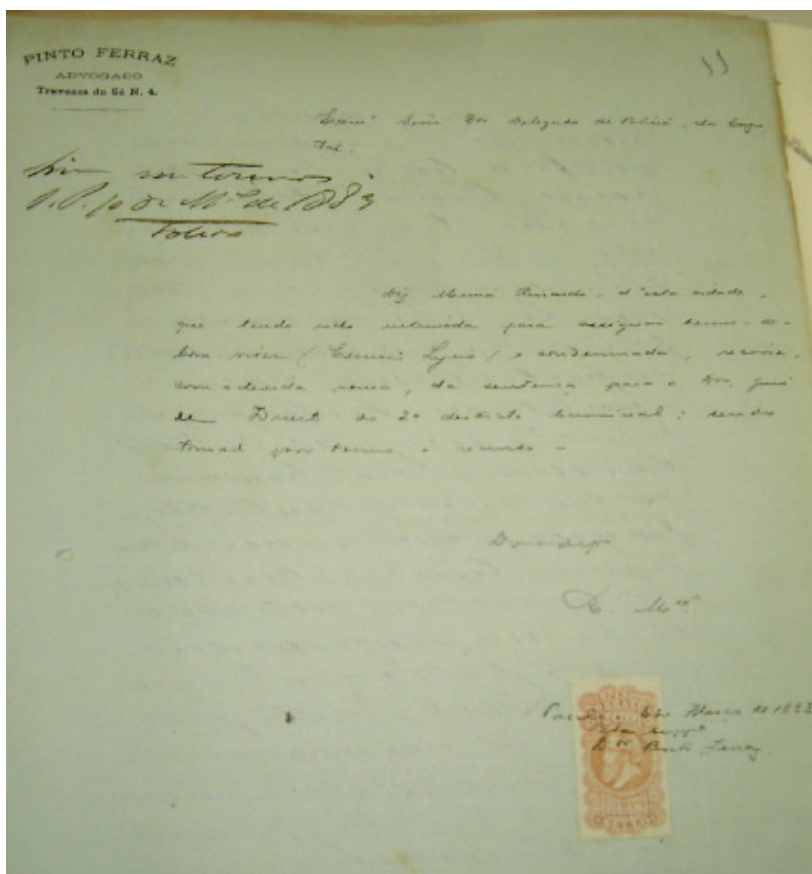 PINTO FERRAZ
ADVOGADO
Travessa da Sé N. 4.
11
Exmº Snr. Dor Delegado de Policia, da Capi
tal.
Sim em termos.
S. P. 10 de Mço de 1883
Diz Emma, d'esta cidade,
que tendo sido intimada para assignar termo de
bom viver (Escrivão) e condemnada, recorre,
com a devida venia, da sentença para o Dor. Juiz
de Direito do 2º destricto Criminal; sendo
tomado por termo o recurso -
R. Mcê
Março de 1883
Dor Pinto Ferraz